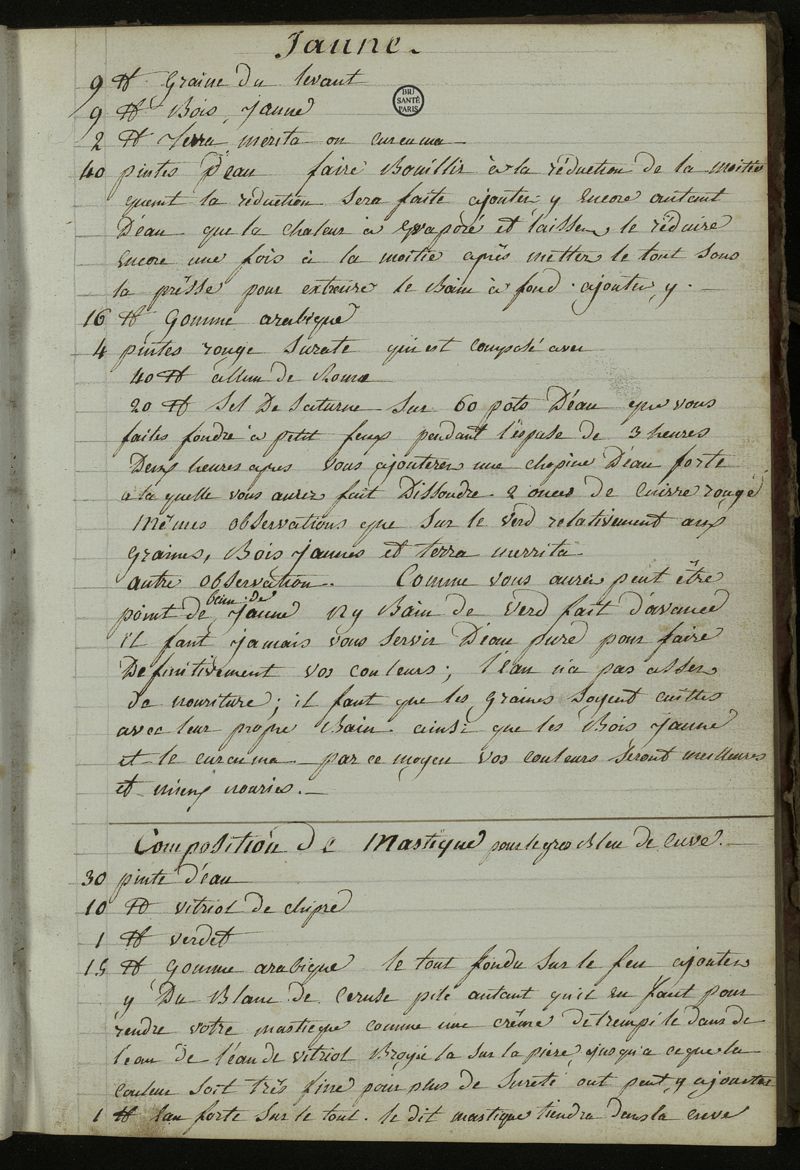 Jaune.
9 ℔ Graine du levant
BIU
SANTÉ
PARIS
9 ℔ Bois Jaune
2 ℔ Terra merita ou curcuma
40 pintes D'eau faire Bouillir à la réduction de la moitié
quent la réduction sera faite ajouter y Encore autant
D'éau que la chaleur à Evaporé et laisser le réduire
Encore une fois à la moitie après metter le tout sous
la présse pour extraire le Bain à fond. ajouter y.
16 ℔ Gomme arabique
4 pintes rouge Surate qui est composé avec
40 ℔ allun de Rome
20 ℔ Sel De Saturne sur 60 pots D'éau que vous
faites fondre a petit feux pendant l'éspase de 3 heures
Deux heures apres vous ajouterer une chopine D'éau forte
a la quelle vous aurer fait Dissoudre 2 onces de Cuivre rouge
Mêmes observations que sur le verd relativement aux
Graines, Bois jaunes et terra merrita
autre observation. Comme vous aurer peut être
point de bain de Jaune ny Bain de Verd fait d'avance
il faut jamais vous servir D'éau pure pour faire
Definitivement vos couleurs; l'éau n'a pas asser
de nouriture; il faut que les graines soyent cuittes
avec leur propre Bain ainsi que les Bois Jaune
et le curcuma par ce moyen vos couleurs seront meilleures
et mieux nouries.
Composition de Mastique pour le gros bleu de Cuve.
30 pinte d'éau
10 ℔ vitriol de chipre
1 ℔ verdet
15 ℔ Gomme arabique le tout fondu sur le feu ajouter
y Du Blanc de Ceruse pilé autant qu'il en faut pour
rendre votre mastique comme une crême détrempé le dans de
l'eau de l'éau de vitriol Broyé la sur la piere jusqu'a ce que la
couleur soit très fine pour plus de sureté ont peut y ajouter
1 ℔ Eau forte sur le tout. le dit mastique tiendra dans la cuve